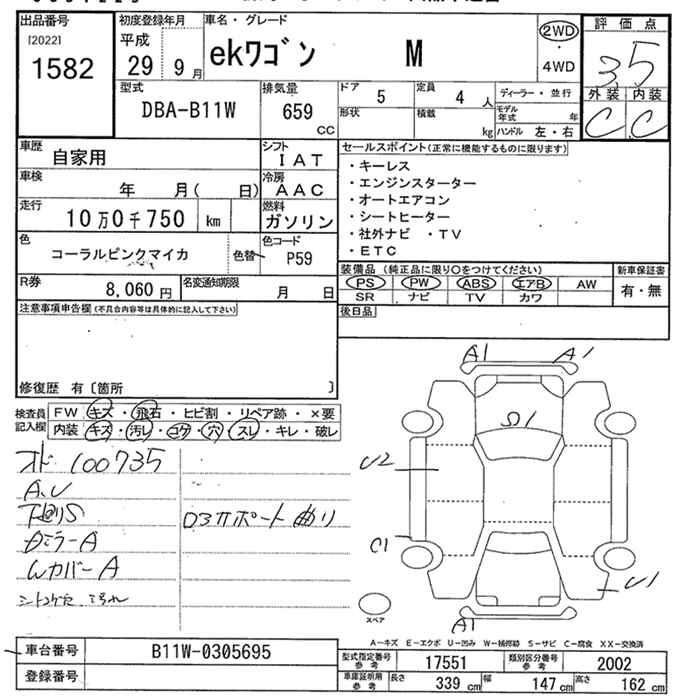 出品番号
[2022]
1582
初度登録年月
平成
29 年 9 月
車名・グレード
ekワゴン M
2WD
・
4WD
評価点
3.5
外装 内装
C C
型式
DBA-B11W
排気量
659
cc
ドア 5
定員 4 人
形状
積載 kg
ディーラー・並行
モデル年式 年
ハンドル 左・右
車歴
自家用
シフト
IAT
車検
年 月( 日)
冷房
AAC
走行
10万0千750 km
燃料
ガソリン
色
コーラルピンクマイカ
色替
色コード
P59
R券
8,060 円
名変通知期限
月 日
セールスポイント(正常に機能するものに限ります)
・キーレス
・エンジンスターター
・オートエアコン
・シートヒーター
・社外ナビ ・TV
・ETC
装備品 (純正品に限り○をつけてください)
PS PW ABS エアB AW
SR ナビ TV カワ
新車保証書
有・無
後日品
注意事項申告欄(不具合内容等は具体的に記入して下さい)
修復歴 有〔箇所 〕
検査員
記入欄
FW キズ・飛石・ヒビ割・リペア跡・×要
内装 キズ・汚レ・コゲ・穴・スレ・キレ・破レ
オド 100735
A.U
下廻りS
Dミラー A
Wカバー A
シートコゲ穴 ヨゴレ
D3サポート曲り
A1 A1
Ω1
U2
C1
U1
A1
スペア
A-キズ E-エクボ U-凹み W-補修跡 S-サビ C-腐食 XX-交換済
車台番号
B11W-0305695
登録番号
型式指定番号
参考
17551
類別区分番号
参考
2002
車庫証明用
参考
長さ 339 cm
幅 147 cm
高さ 162 cm